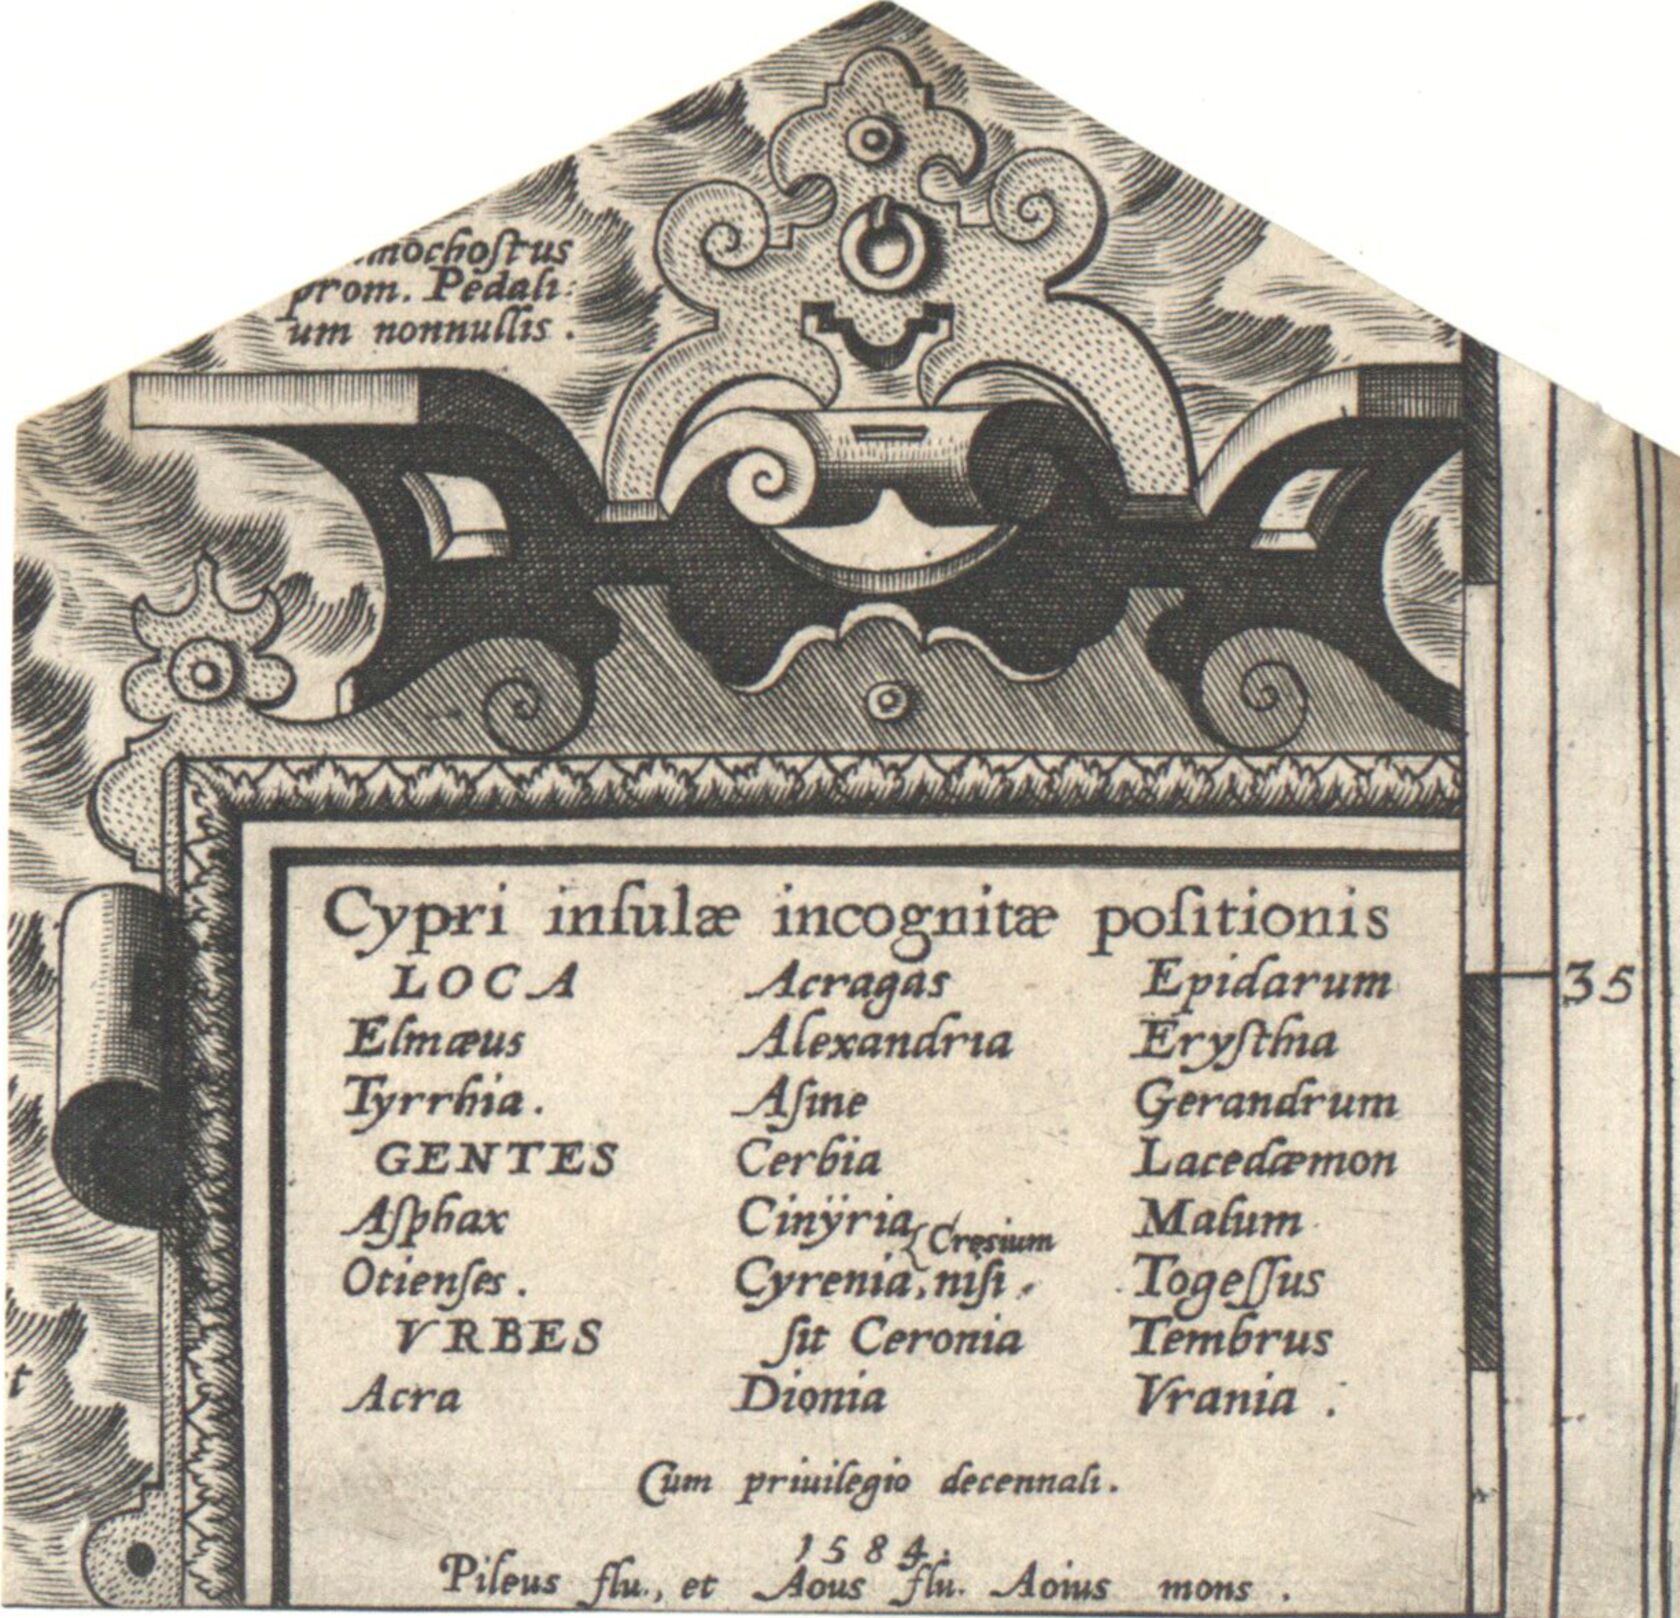 prom. Pedali:
um nonnullis.
Cypri inſulæ incognitæ poſitionis
LOCA
Elmæus
Tyrrhia.
GENTES
Aſphax
Otienſes.
VRBES
Acra
Acragas
Alexandria
Aſine
Cerbia
Cinÿria
Cyrenia, niſi { Cresium
ſit Ceronia
Dionia
Epidarum
Eryſthia
Gerandrum
Lacedæmon
Malum
Togeſſus
Tembrus
Vrania.
Cum priuilegio decennali.
1584.
Pileus flu., et Aous flu. Aoius mons.
35